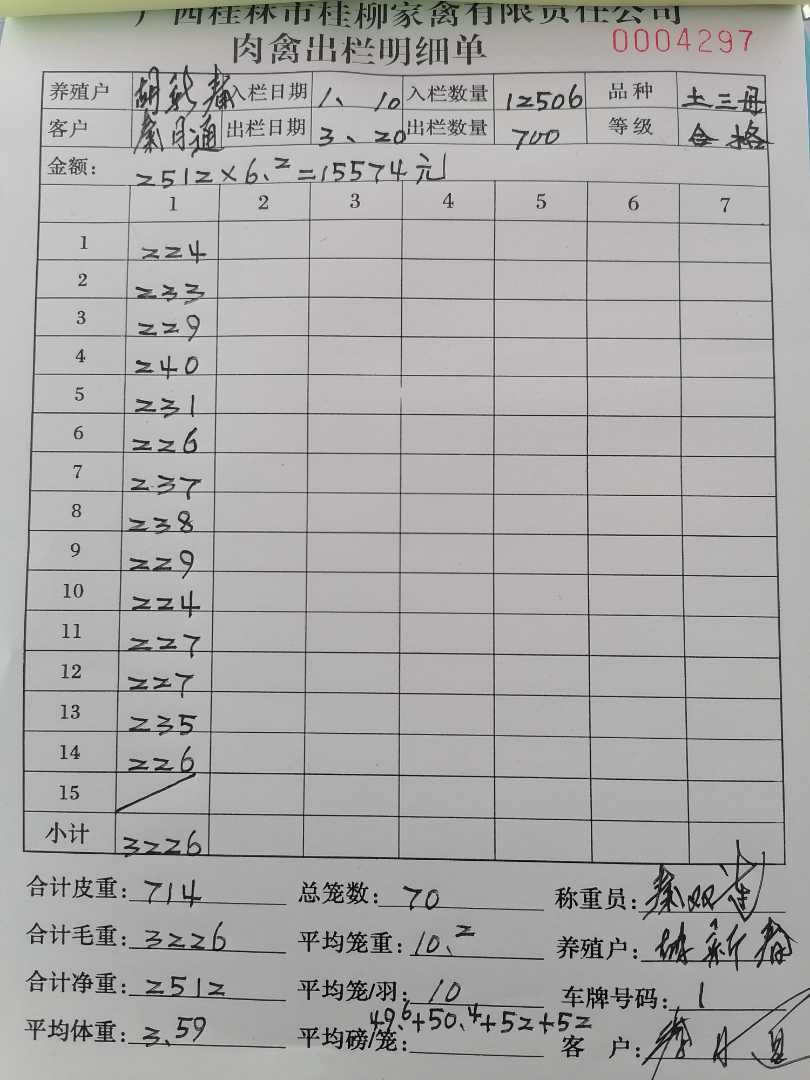 广西桂林市桂柳家禽有限责任公司
肉禽出栏明细单 0004297
养殖户 胡新春 入栏日期 1、10 入栏数量 12506 品种 土三丹
客户 秦日通 出栏日期 3、20 出栏数量 700 等级 合格
金额: 2512×6.2=15574元
1 2 3 4 5 6 7
1 224
2 233
3 229
4 240
5 231
6 226
7 237
8 238
9 229
10 224
11 227
12 227
13 235
14 226
15
小计 3226
合计皮重: 714 总笼数: 70 称重员: 秦双
合计毛重: 3226 平均笼重: 10.2 养殖户: 胡新春
合计净重: 2512 平均笼/羽: 10 车牌号码: 1
平均体重: 3.59 平均磅/笼: 49.6+50.4+52+52 客 户: 秦日